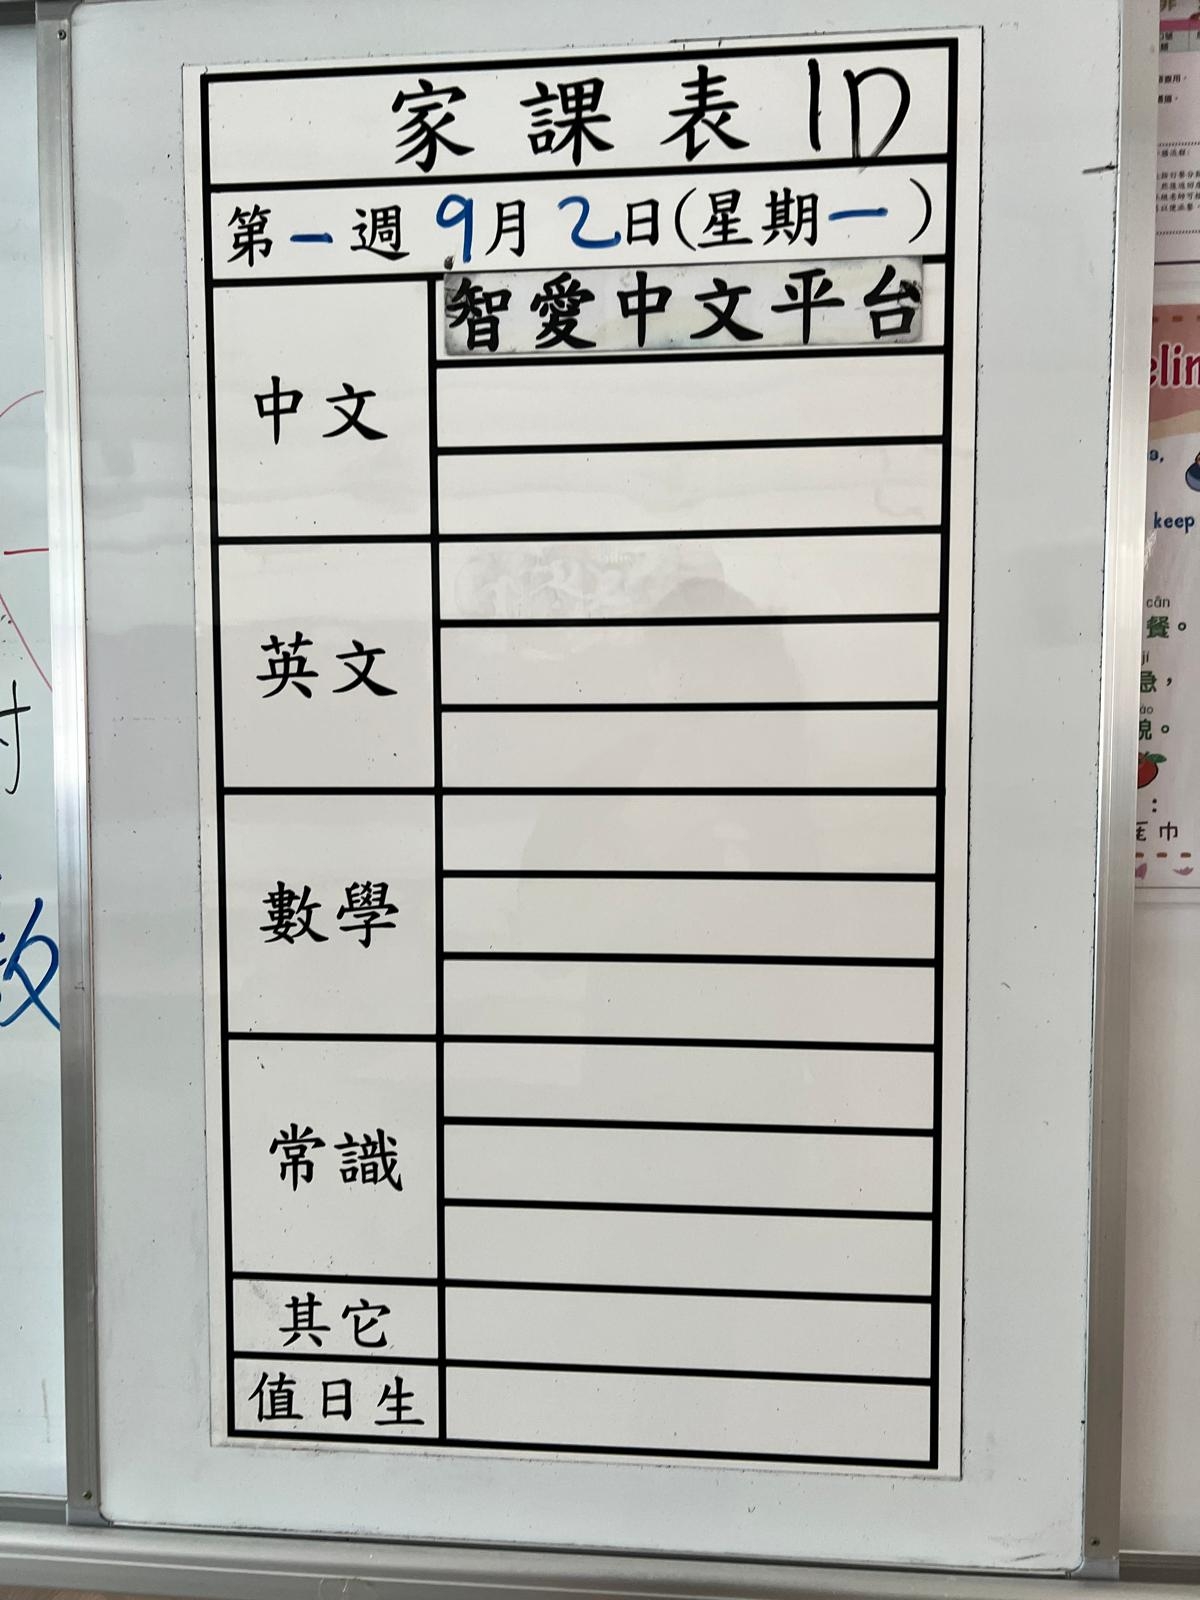 家課表 1D
第一週 9月2日(星期一)
中文
智愛中文平台
英文
數學
常識
其它
值日生
keep
cān
餐。